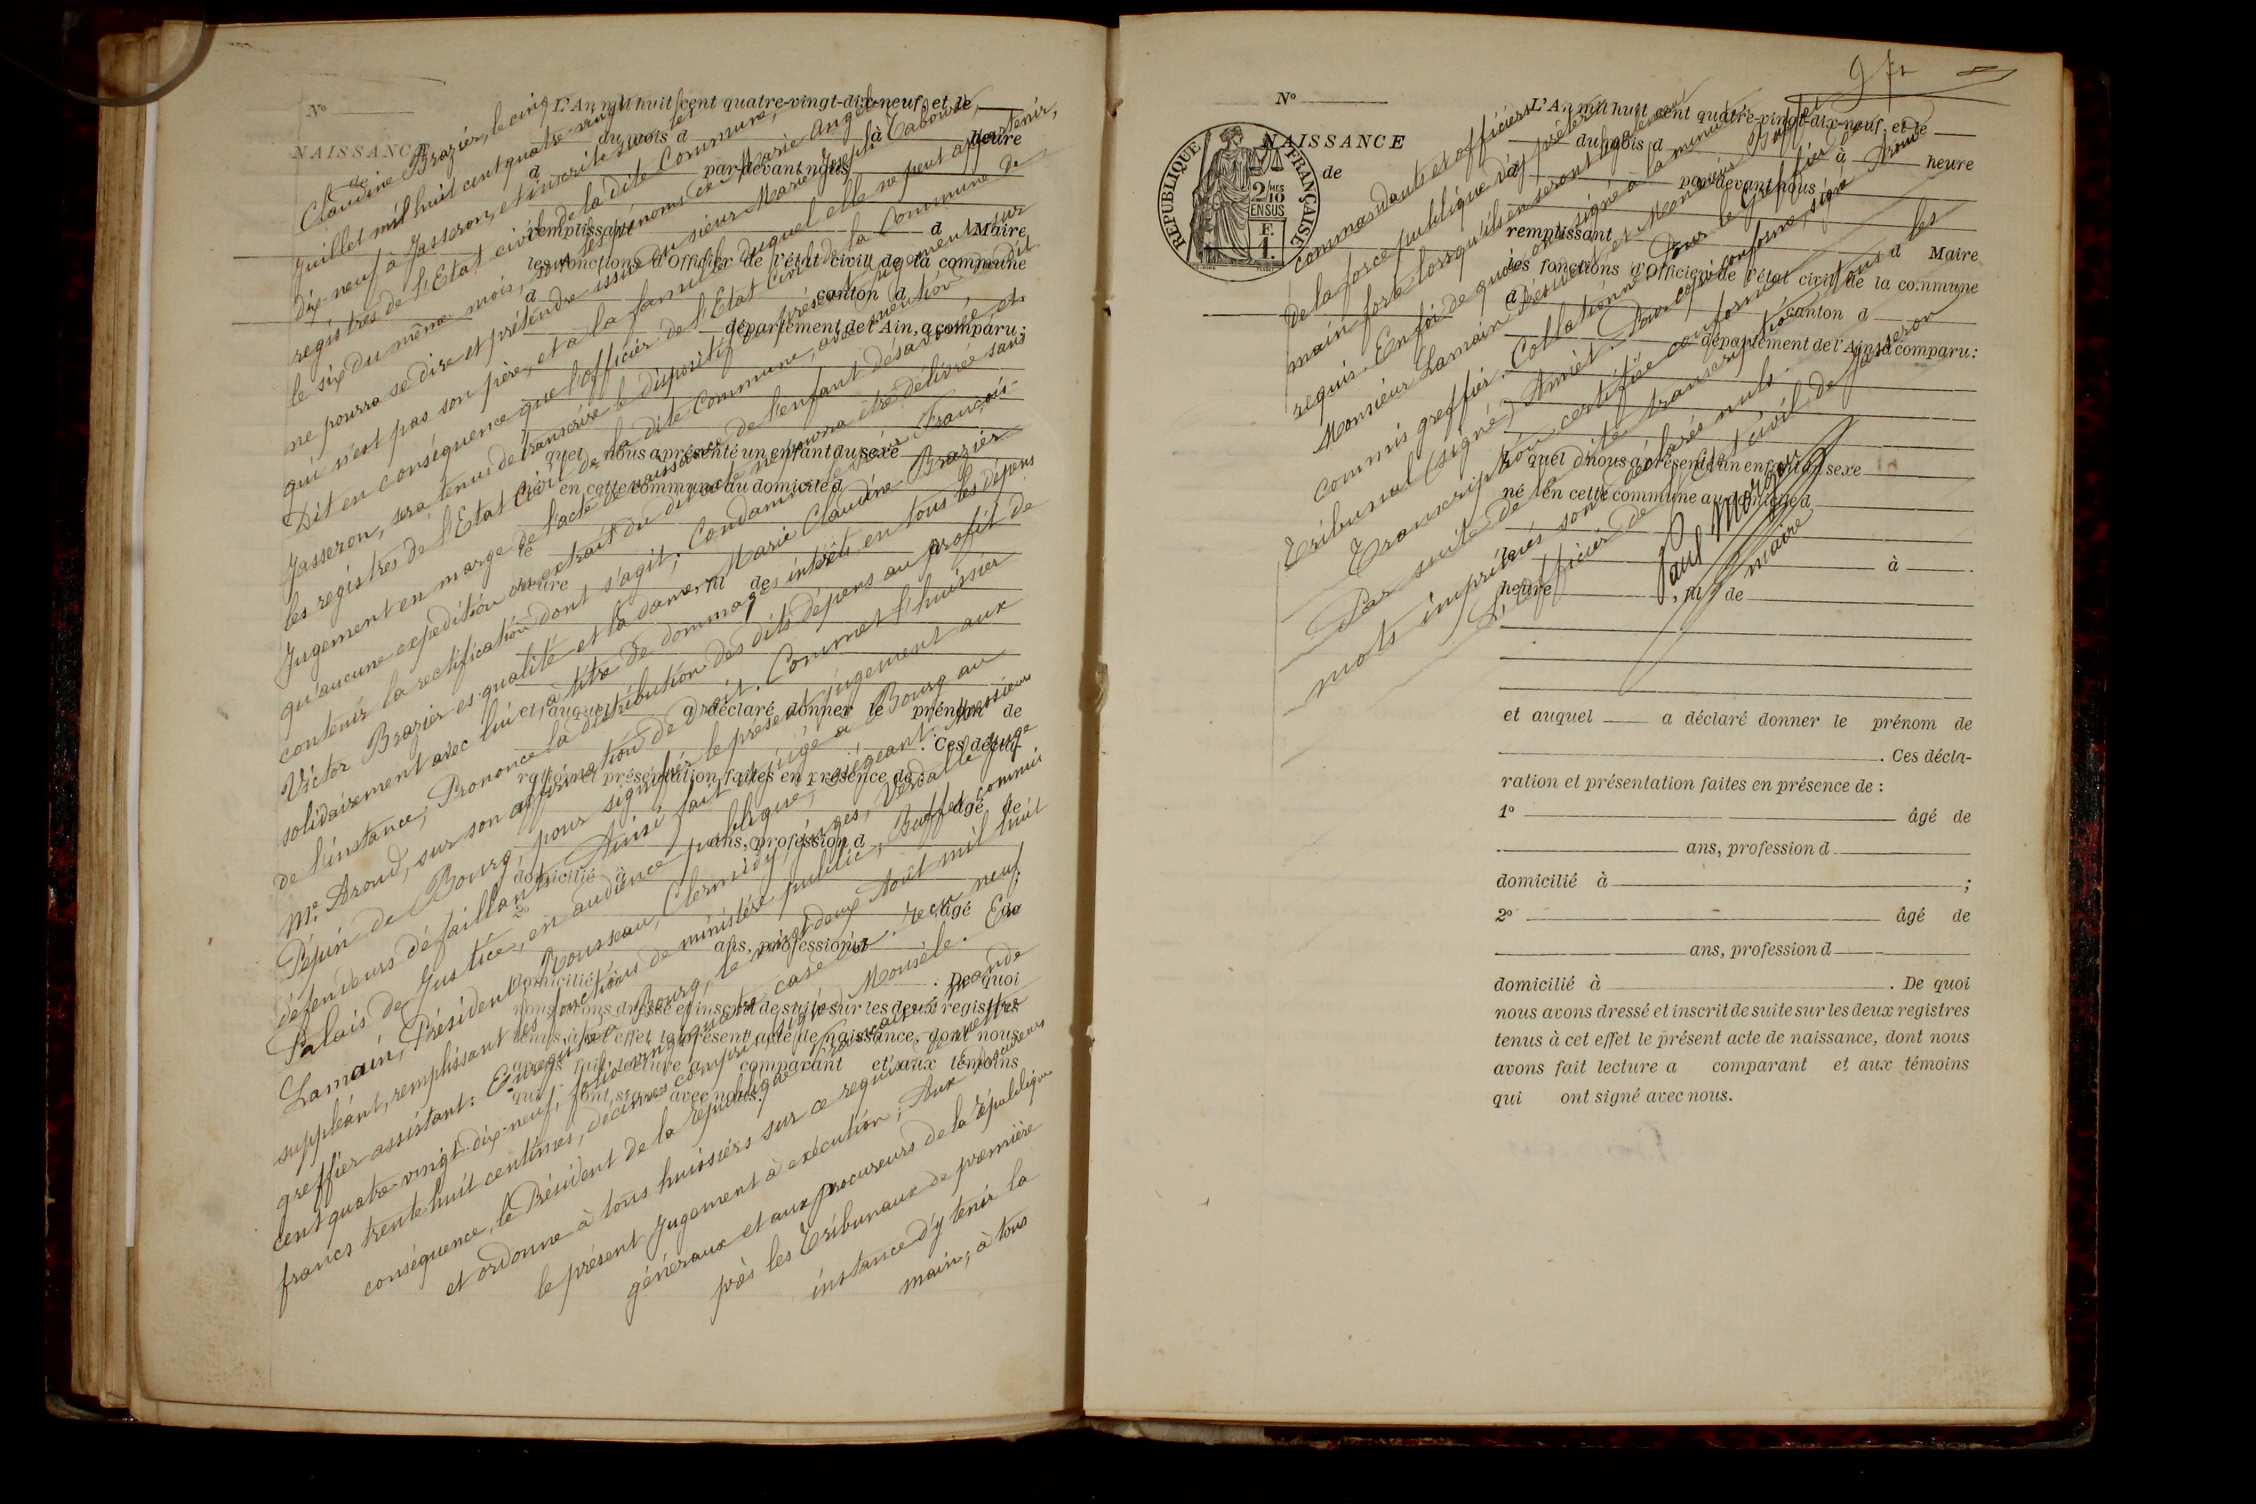 Claudine Brazier, le cinq
Juillet mil huit cent quatre-vingt
dix-neuf à Jasseron, et inscrite sur les
registres de l'Etat civil de la dite Commune,
le six du même mois, sous les prénoms de Marie Angèle
ne pourra se dire et prétendre issue du sieur Marie Joseph Tabouret,
qui n'est pas son père, et à la famille duquel elle ne peut appartenir,
Dit en conséquence que l'officier de l'Etat civil de la Commune de
Jasseron, sera tenu de transcrire le dispositif du présent jugement sur
les registres de l'Etat Civil de la dite Commune, avec mention du dit
Jugement en marge de l'acte de naissance de l'enfant désavouée, et
qu'aucune expédition ou extrait du dit acte ne pourra être délivrée sans
contenir la rectification dont s'agit; Condamne le sieur François-
Victor Brazier es-qualité et la dame Marie Claudine Brazier
solidairement avec lui à titre de dommages intérêts en tous les dépens
de l'instance; Prononce la distribution des dits dépens au profit de
Me. Aroud, sur son affirmation de droit. Commet l'huissier
Péjuin de Bourg, pour signifier le présent jugement aux
défendeurs défaillants. Ainsi fait et jugé à Bourg au
Palais de Justice, en audience publique, siégeant: Messieurs
Lamain, Président, Rousseau, Clermidy, juges, Verdalle juge
suppléant, remplissant les fonctions de ministère public, Buffet commis
greffier assistant: Enregistré à Bourg, le vingt deux Août mil huit
cent quatre vingt-dix-neuf, folio vingt quatre case six. reçu neuf
francs trente huit centimes, décimes compris (signé) Monsèle. En
conséquence, le Président de la République Française mande
et ordonne à tous huissiers sur ce requis, de mettre
le présent Jugement à exécution; Aux procureurs
généraux et aux procureurs de la République
près les Tribunaux de première
instance d'y tenir la
main, à tous
No
NAISSANCE
de
L'An mil huit cent quatre-vingt-dix-neuf, et le
du mois d à heure
d par devant nous
remplissant d Maire
les fonctions d'Officier de l'état civil de la commune
d canton d
département de l'Ain, a comparu:
quel nous a présenté un enfant du sexe
né en cette commune au domicile d
le à
heure , fil de
et auquel a déclaré donner le prénom de
. Ces décla-
ration et présentation faites en présence de:
âgé de
ans, profession d
domicilié à
2o âgé de
ans, profession d
domicilié à . De quoi
nous avons dressé et inscrit de suite sur les deux registres
tenus à cet effet le présent acte de naissance, dont nous
avons fait lecture a comparant et aux témoins
qui ont signé avec nous.
commandants et officiers
de la force publique d'y prêter
main forte lorsqu'ils en seront légalement
requis. En foi de quoi ont signé à la minute
Monsieur Lamain Président et Monsieur Buffet
commis greffier. Collationné Pour le Greffier du
Tribunal (signé) Amiet. Pour copie conforme, signé Aroud
Transcription certifiée conforme.
Par suite de la dite transcription tous les
mots imprimés sont déclarés nuls.
L'officier de l'Etat civil de Jasseron
Paul Morgon
maire
9 fr
No
NAISSANCE
de
REPUBLIQUE FRANÇAISE
2/10 MES
EN SUS
F.
1.
L'An mil huit cent quatre-vingt-dix-neuf, et le
du mois d à heure
d par devant nous
remplissant d Maire
les fonctions d'Officier de l'état civil de la commune
d canton d
département de l'Ain a comparu:
quel nous a présenté un enfant du sexe
né en cette commune au domicile d
le à
heure , fil de
et auquel a déclaré donner le prénom de
. Ces décla-
ration et présentation faites en présence de :
1o âgé de
ans, profession d
domicilié à ;
2o âgé de
ans, profession d
domicilié à . De quoi
nous avons dressé et inscrit de suite sur les deux registres
tenus à cet effet le présent acte de naissance, dont nous
avons fait lecture a comparant et aux témoins
qui ont signé avec nous.